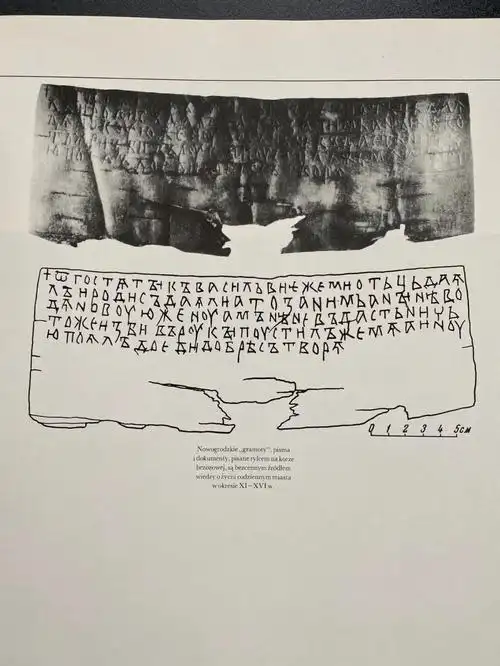 +ѿгостѧтꙑкъвасильвиѥжемиотьцьдаꙗ
лъиродисъдаꙗлиатозанимьанꙑнѣво
дѧновоуюженоуамънѣневъдастьничь
тожеизбивъроукꙑпоустилъжемѧаиноу
юпоѧлъдоедидобрѣсътворѧ
0 1 2 3 4 5см
Nowogrodzkie „gramoty”, pisma
i dokumenty, pisane rylcem na korze
brzozowej, są bezcennym źródłem
wiedzy o życiu codziennym miasta
w okresie XI–XVI w.